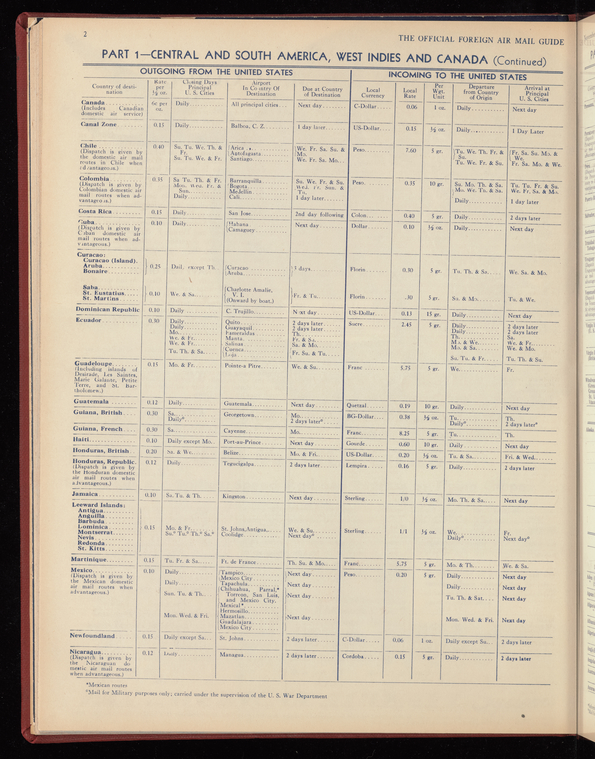 2
THE OFFICIAL FOREIGN AIR MAIL GUIDE
PART 1—CENTRAL AND SOUTH AMERICA, WEST INDIES AND CANADA (Continued)
OUTGOING FROM THE UNITED STATES INCOMING TO THE UNITED STATES
Country of desti- Rate Closing Days Airport Due at Country Local Local Per Departure Arrival at
nation per Principal In Country Of of Destination Currency Rate Wgt. from Country Principal
½ oz. U. S. Cities Destination Unit of Origin U. S. Cities
Canada 6c per Daily All principal cities Next day C-Dollar 0.06 1 oz. Daily Next day
(Includes Canadian oz.
domestic air service)
Canal Zone 0.15 Daily Balboa, C. Z. 1 day later US-Dollar 0.15 ½ oz. Daily 1 Day Later
Chile 0.40 Su. Tu. We. Th. & Arica We. Fr. Sa. Su. & Peso 7.60 5 gr. Tu. We. Th. Fr. & Fr. Sa. Su. Mo. &
(Dispatch is given by Fr. Antofagasta Mo. Su. We.
the domestic air mail Su. Tu. We. & Fr. Santiago We. Fr. Su. Mo. Tu. We. Fr. & Su. Fr. Sa. Mo. & We.
routes in Chile when
advantageous.)
Colombia 0.35 Su Tu. Th. & Fr. Barranquilla Su. We. Fr. & Su. Peso 0.35 10 gr. Su. Mo. Th. & Sa. Tu. Tu. Fr. & Su.
(Dispatch is given by Mon. Wed. Fr. & Bogota We. Fr. Sun. & Mo. We. Tu. & Sa. We. Fr. Su. & Mo
Colombian domestic air Sun. Medellin Tu.
mail routes when ad- Daily Cali 1 day later Daily 1 day later
vantageous.)
Costa Rica 0.15 Daily San Jose 2nd day following Colon 0.40 5 gr. Daily 2 days later
Cuba 0.10 Daily Habana Next day Dollar 0.10 ½ oz. Daily Next day
(Dispatch is given by Camaguey
Cuban domestic air
mail routes when ad-
vantageous.)
Curacao:
Curacao (Island)
Aruba 0.25 Dail. except Th. Curacao 3 days Florin 0.30 5 gr. Tu. Th. & Sa. We. Sa. & Mo.
Bonaire Aruba
Saba Charlotte Amalie,
St. Eustatius 0.10 We. & Sa. V. I. Fr. & Tu. Florin .30 5 gr. Sa. & Mo. Tu. & We.
St. Martins (Onward by boat.)
Dominican Republic 0.10 Daily C. Trujillo Next day US-Dollar 0.15 15 gr. Daily Next day
Ecuador 0.30 Daily Quito 2 days later Sucre 2.45 5 gr. Daily 2 days later
Daily Guayaquil 2 days later Daily 2 days later
Mo. Esmeraldas Th. Th. Sa.
We. & Fr. Manta Fr. & Su. Mo. & We. We. & Fr.
We. & Fr. Salinas Sa. & Mo. Mo. & Sa. We. & Mo.
Tu. Th. & Sa. Cuenca
Loja Fr. Su. & Tu. Su. Tu. & Fr. Tu. Th. & Su.
Guadeloupe 0.15 Mo. & Fr. Pointe-a Pitre We. & Su. Franc 5.75 5 gr. We. Fr.
(Including islands of
Desirade, Les Saintes,
Marie Galante, Petite
Terre, and St. Bar-
tholomew.)
Guatemala 0.12 Daily Guatemala Next day Quetzal 0.19 10 gr. Daily Next day
Guiana, British 0.30 Sa. Georgetown Mo. BG-Dollar 0.38 ½ oz. Tu. Th.
Daily° 2 days later° Daily° 2 days later°
Guiana, French 0.30 Sa. Cayenne Mo. Franc 8.25 5 gr. Tu. Th.
Haiti 0.10 Daily except Mo. Port-au-Prince Next day Gourde 0.60 10 gr. Daily Next day
Honduras, British 0.20 Sa. & We. Belize Mo. & Fri. US-Dollar 0.20 ½ oz. Tu. & Sa. Fri. & Wed.
Honduras, Republic 0.12 Daily Tegucigalpa 2 days later Lempira 0.16 5 gr. Daily 2 days later
(Dispatch is given by
the Honduran domestic
air mail routes when
advantageous.)
Jamaica 0.10 Sa. Tu. & Th. Kingston Next day Sterling 1/0 ½ oz. Mo. Th. & Sa. Next day
Leeward Islands:
Antigua
Anguilla
Barbuda
Dominica 0.15 Mo. & Fr. St. Johns, Antigua We. & Su. Sterling 1/1 ½ oz. We. Fr.
Montserrat Su.° Tu.° Th.° Sa.° Coolidge Next day° Daily° Next day°
Nevis
Redonda
St. Kitts
Martinique 0.15 Tu. Fr. & Sa. Ft. de France Th. Su. & Mo. Franc 5.75 5 gr. Mo. & Th. We. & Sa.
Mexico 0.10 Daily Tampico Next day Peso 0.20 5 gr. Daily Next day
(Dispatch is given by Mexico City
the Mexican domestic Daily Tapachula Next day Daily Next day
air mail routes when Chihuahua, Parral,*
advantageous.) Sun. Tu. & Th. Torreon, San Luis, Next day Tu. Th. & Sat. Next day
and Mexico City,
Mexical*
Hermosillo
Mon. Wed. & Fri. Mazatlan Next day Mon. Wed. & Fri. Next day
Guadalajara
Mexico City
Newfoundland 0.15 Daily except Sa. St. Johns 2 days later C-Dollar 0.06 1 oz. Daily except Su. 2 days later
Nicaragua 0.12 Daily Managua 2 days later Cordoba 0.15 5 gr. Daily 2 days later
(Dispatch is given by
the Nicaraguan do-
mestic air mail routes
when advantageous.)
*Mexican routes
°Mail for Military purposes only; carried under the supervision of the U. S. War Department